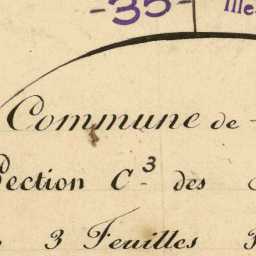 -35-
Commune de
Section C.3 des
3 Feuilles